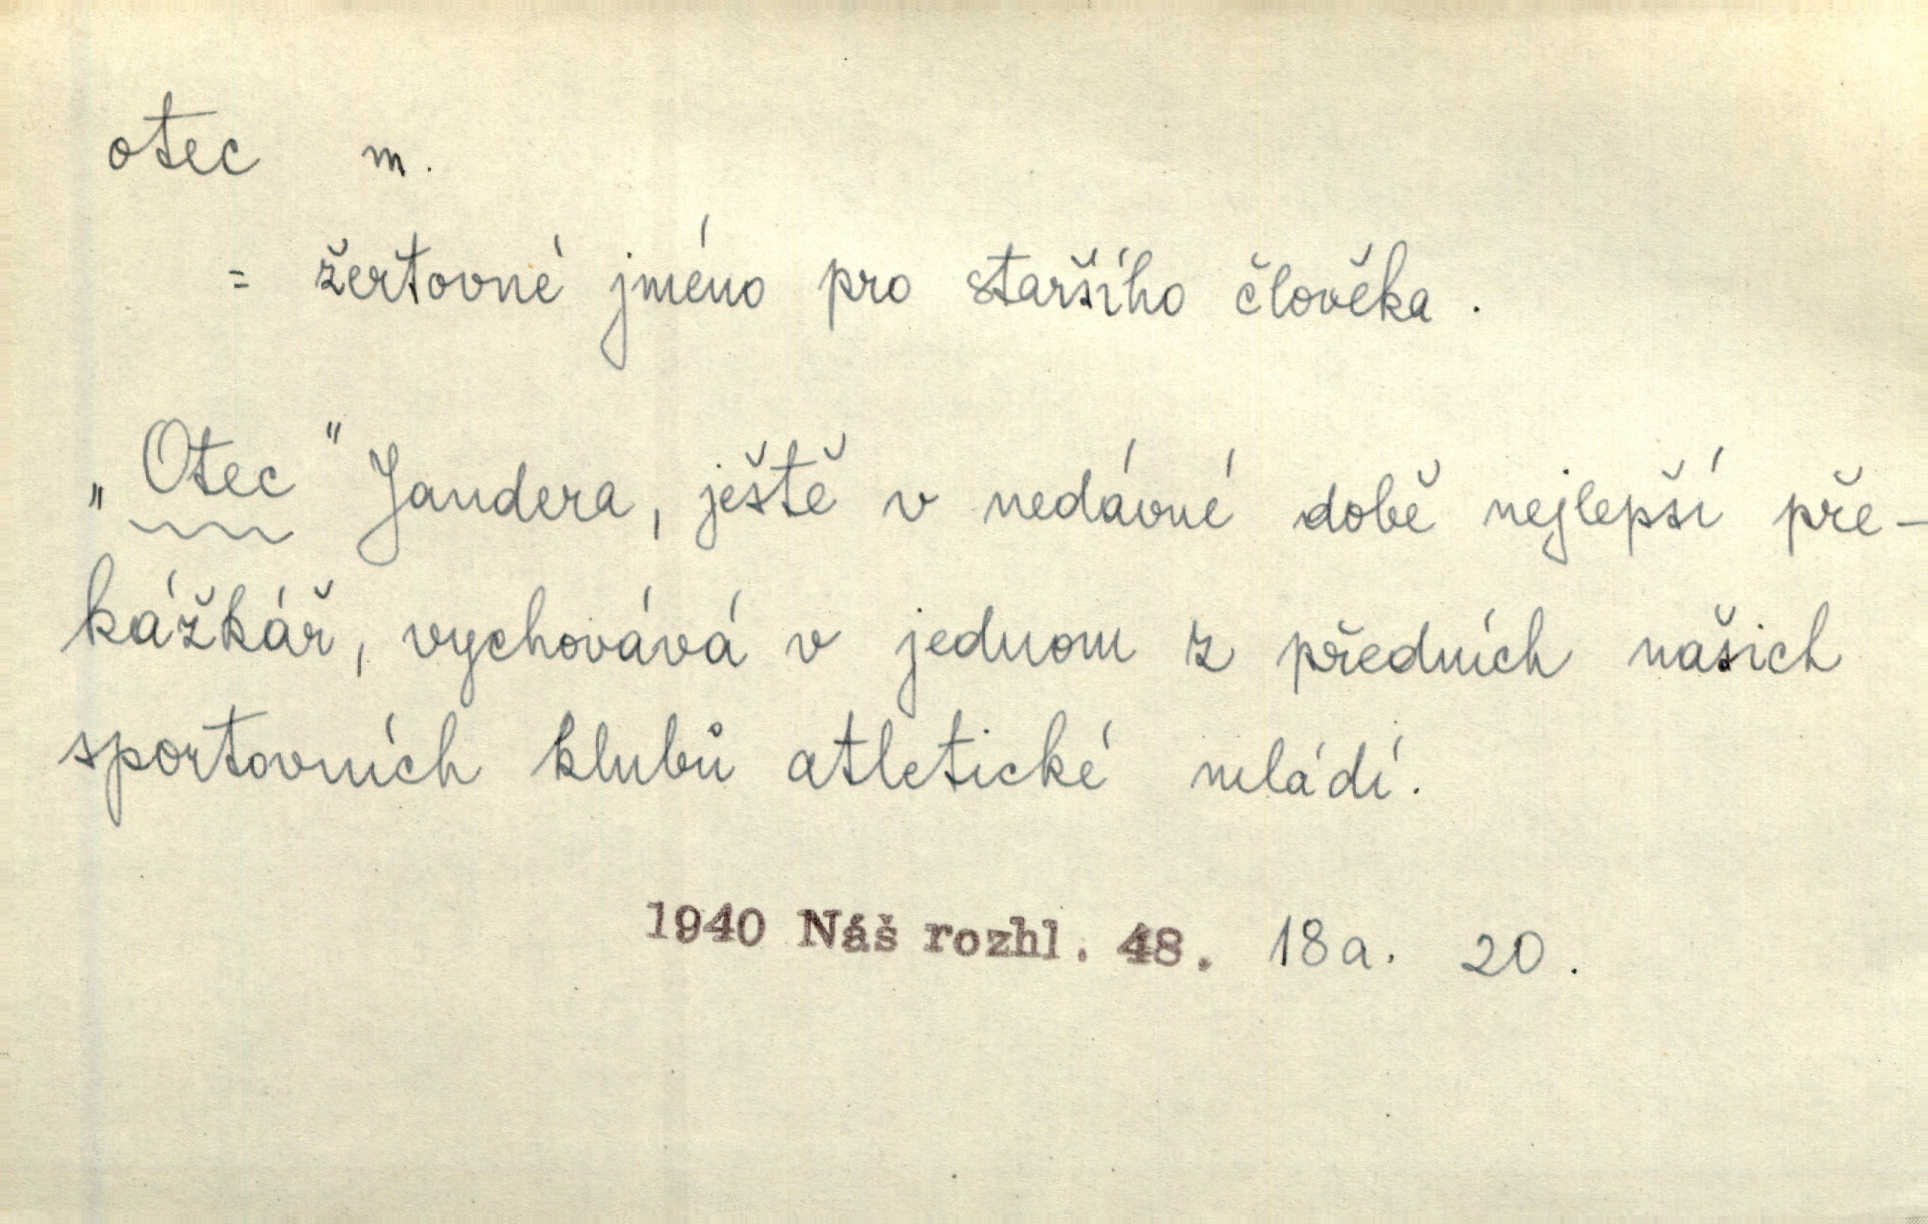 otec m.
= žertovné jméno pro staršího člověka.
„Otec" Jandera, ještě v nedávné době nejlepší pře-
kážkář, vychovává v jednom z předních našich
sportovních klubů atletické mládí.
1940 Náš rozhl. 48. 18a. 20.